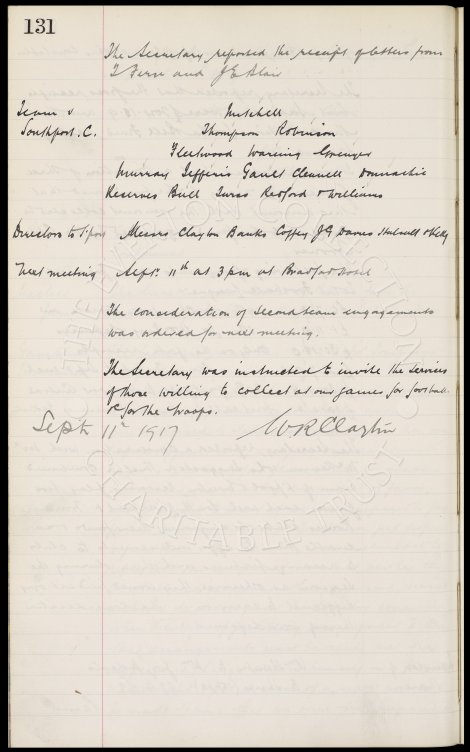 131
The Secretary reported the receipt of letters from
T Fern and J E Blair
Team v Mitchell
Southport. C. Thompson Robinson
Fleetwood Wareing Grenyer
Murray Jefferis Gault Clennell Donnachie
Reserves Bull Williams
Directors to S'port Messrs Clayton Banks Coffey J G Davies Halsall & Kelly
Next meeting Sept. 11th at 3 pm at Bradford Hotel
The consideration of second team engagements
was ordered for next meeting.
The Secretary was instructed to invite the services
of those willing to collect at our games for football
&c for the troops.
Sept 11th 1917 W R Clayton
THE EVERTON COLLECTION
CHARITABLE TRUST